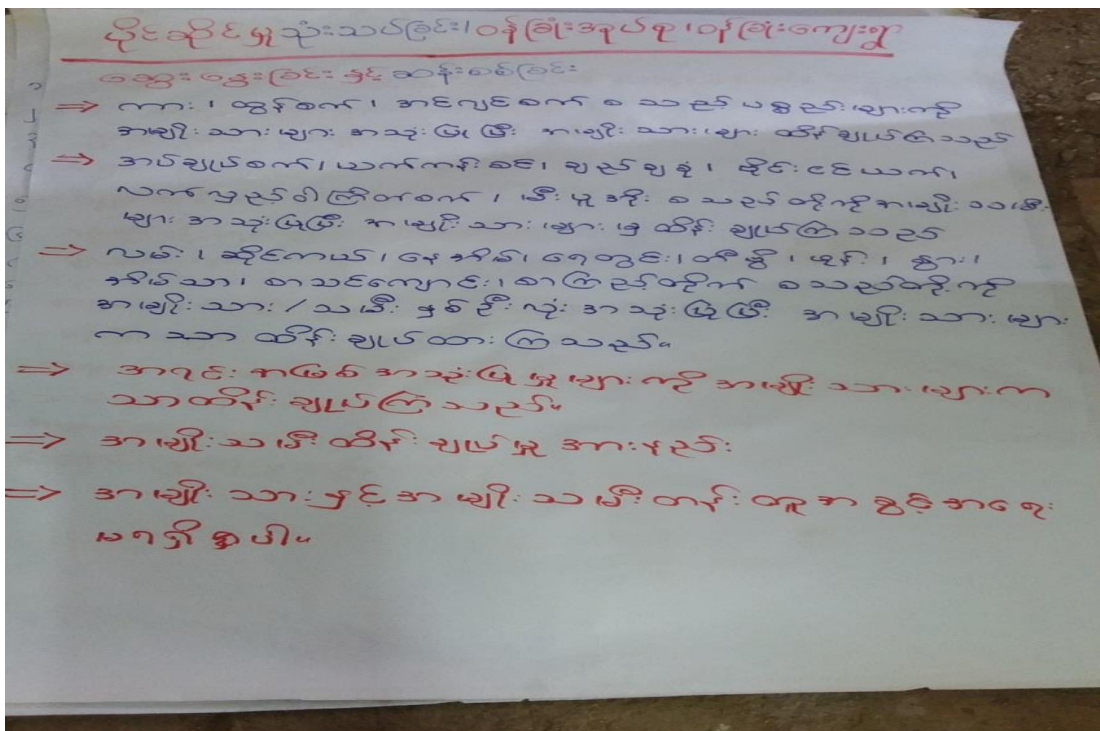 ပိုင်ဆိုင်မှု သုံးသပ်ခြင်း၊ ဝန်ခြုံးအုပ်စု၊ ဝန်ခြုံးကျေးရွာ
ဆွေးနွေးခြင်းနှင့် ဆန်းစစ်ခြင်း
⇒ ကား၊ ထွန်စက်၊ အင်ဂျင်စက် စသည့်ပစ္စည်းများကို
အမျိုးသားများ အသုံးပြုပြီး အမျိုးသားများ ထိန်းချုပ်ကြသည်
⇒ အပ်ချုပ်စက်၊ ယက်ကန်းစင်၊ ချည်ချနဲ့၊ ဗိုင်းငင်ယက်၊
လက်မှုည်ဝါကြိတ်စက်၊ မီးပူအိုး စသည်တို့ကို အမျိုးသမီး
များ အသုံးပြုပြီး အမျိုးသားများမှ ထိန်းချုပ်ကြသည်
⇒ လမ်း၊ ဆိုင်ကယ်၊ နေအိမ်၊ ရေတွင်း၊ တီဗွီ၊ ဖုန်း၊ နွား၊
အိမ်သာ၊ စာသင်ကျောင်း၊ စာကြည့်တိုက် စသည်တို့ကို
အမျိုးသား/သမီး နှစ်ဦးလုံး အသုံးပြုပြီး အမျိုးသားများ
ကသာ ထိန်းချုပ်ထားကြသည်။
⇒ အရင်းအမြစ် အသုံးပြုမှုများကို အမျိုးသားများက
သာထိန်းချုပ်ကြသည်။
⇒ အမျိုးသမီးထိန်းချုပ်မှု အားနည်း
⇒ အမျိုးသားနှင့်အမျိုးသမီးတန်းတူအခွင့်အရေး
မရရှိရှာပါ။